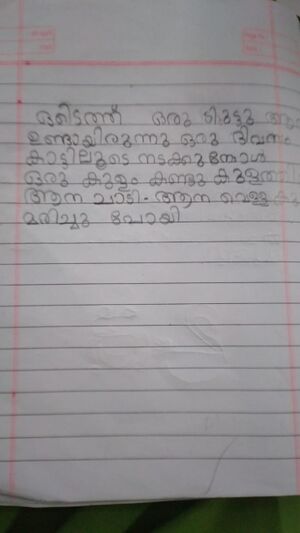 ഒരിടത്ത് ഒരു കുട്ടു
ഉണ്ടായിരുന്നു ഒരു ദിവസം
കാട്ടിലൂടെ നടക്കുമ്പോൾ
ഒരു കുളം കണ്ടു
ആന ചാടി. ആന
മരിച്ചു പോയി